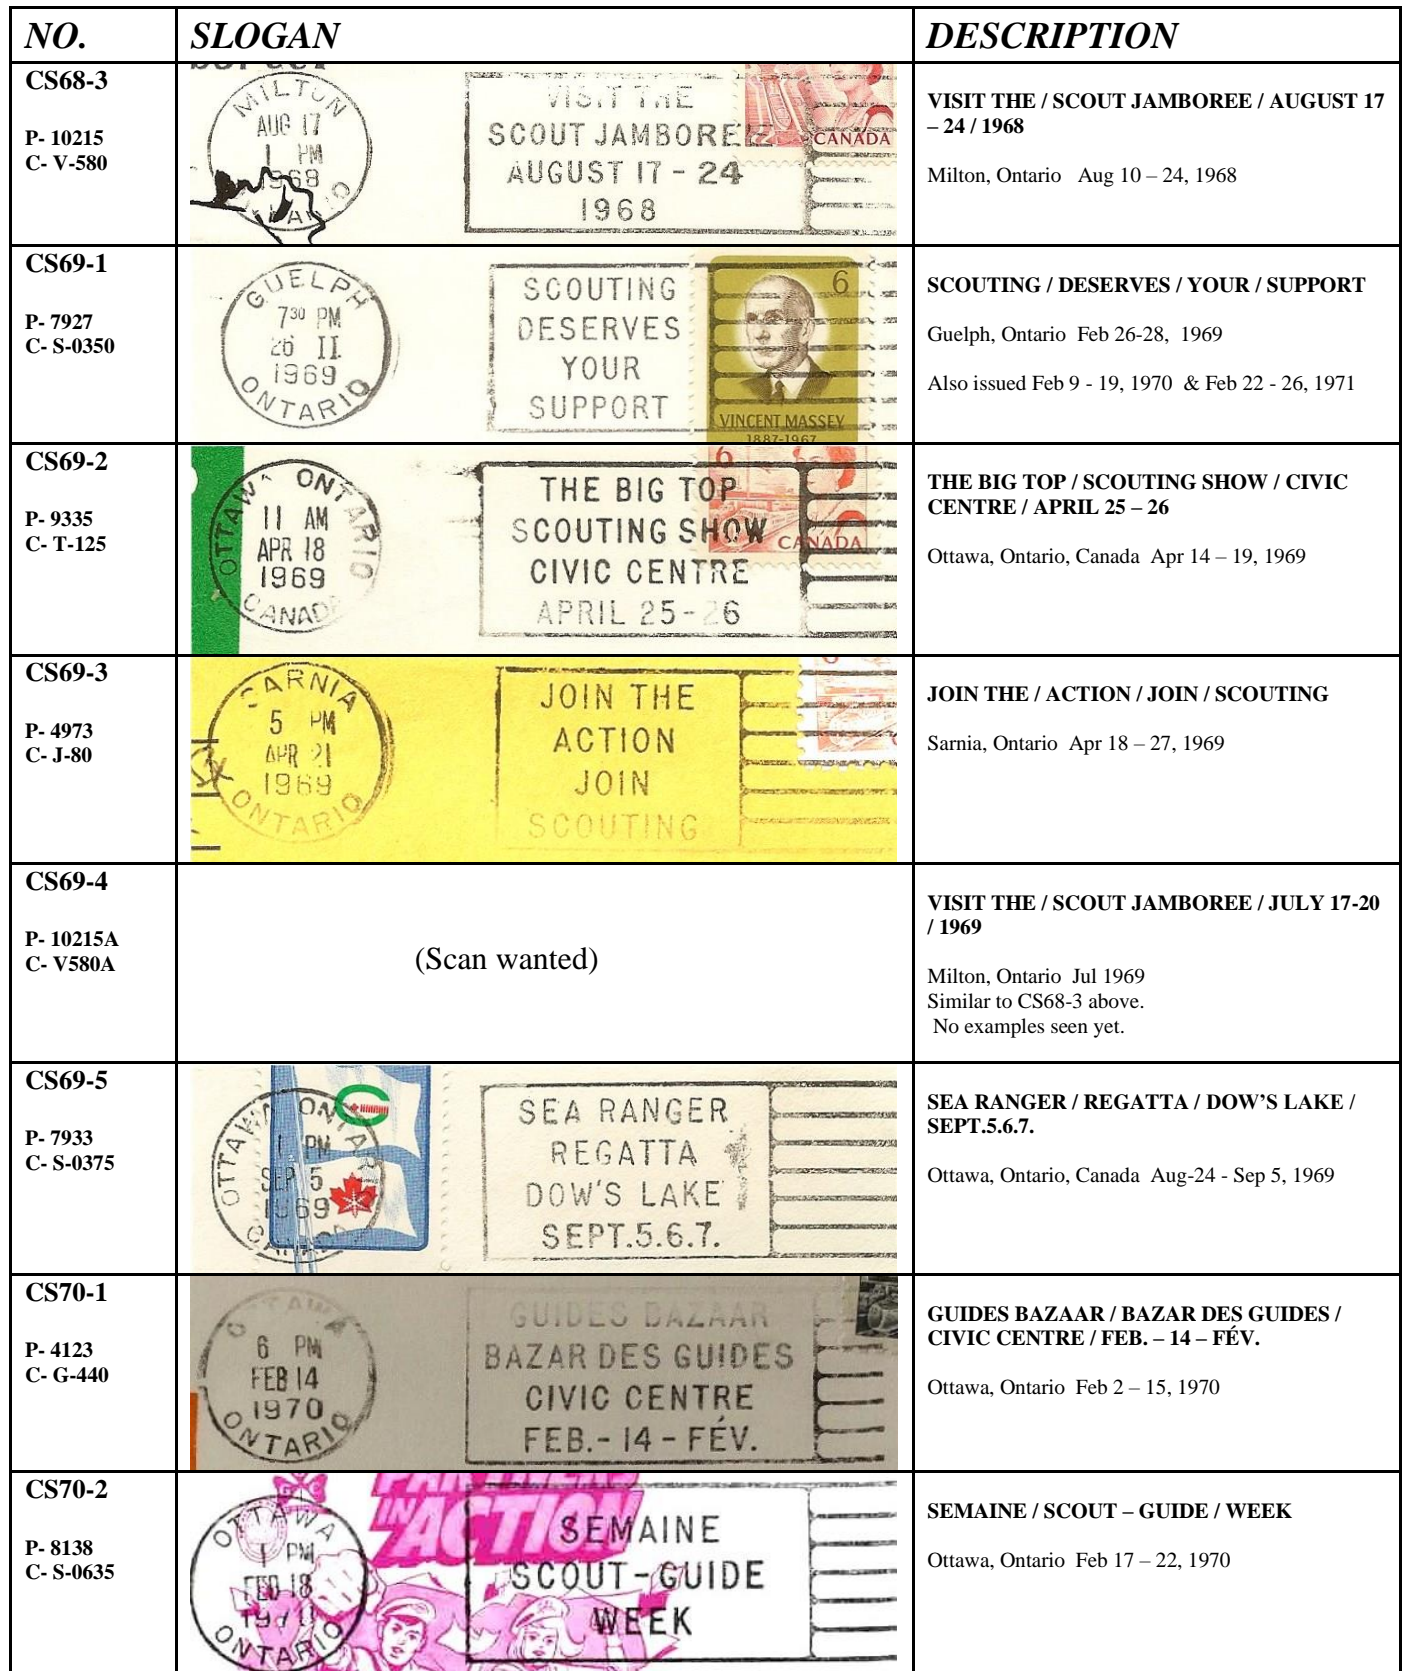 NO.
SLOGAN
DESCRIPTION
CS68-3
P- 10215
C- V-580
MILTON
AUG 17
1 PM
1968
VISIT THE
SCOUT JAMBOREE
AUGUST 17 - 24
1968
CANADA
VISIT THE / SCOUT JAMBOREE / AUGUST 17
– 24 / 1968
Milton, Ontario Aug 10 – 24, 1968
CS69-1
P- 7927
C- S-0350
GUELPH
7 30 PM
26 II
1969
ONTARIO
SCOUTING
DESERVES
YOUR
SUPPORT
6
VINCENT MASSEY
1887-1967
SCOUTING / DESERVES / YOUR / SUPPORT
Guelph, Ontario Feb 26-28, 1969
Also issued Feb 9 - 19, 1970 & Feb 22 - 26, 1971
CS69-2
P- 9335
C- T-125
OTTAWA ONTARIO
11 AM
APR 18
1969
CANADA
THE BIG TOP
SCOUTING SHOW
CIVIC CENTRE
APRIL 25-26
6
CANADA
THE BIG TOP / SCOUTING SHOW / CIVIC
CENTRE / APRIL 25 – 26
Ottawa, Ontario, Canada Apr 14 – 19, 1969
CS69-3
P- 4973
C- J-80
SARNIA
5 PM
APR 21
1969
ONTARIO
JOIN THE
ACTION
JOIN
SCOUTING
JOIN THE / ACTION / JOIN / SCOUTING
Sarnia, Ontario Apr 18 – 27, 1969
CS69-4
P- 10215A
C- V580A
(Scan wanted)
VISIT THE / SCOUT JAMBOREE / JULY 17-20
/ 1969
Milton, Ontario Jul 1969
Similar to CS68-3 above.
No examples seen yet.
CS69-5
P- 7933
C- S-0375
OTTAWA ONTARIO
1 PM
SEP 5
1969
CANADA
SEA RANGER
REGATTA
DOW'S LAKE
SEPT.5.6.7.
SEA RANGER / REGATTA / DOW’S LAKE /
SEPT.5.6.7.
Ottawa, Ontario, Canada Aug-24 - Sep 5, 1969
CS70-1
P- 4123
C- G-440
OTTAWA
6 PM
FEB 14
1970
ONTARIO
GUIDES BAZAAR
BAZAR DES GUIDES
CIVIC CENTRE
FEB.- 14 - FÉV.
GUIDES BAZAAR / BAZAR DES GUIDES /
CIVIC CENTRE / FEB. – 14 – FÉV.
Ottawa, Ontario Feb 2 – 15, 1970
CS70-2
P- 8138
C- S-0635
OTTAWA
1 PM
FEB 18
1970
ONTARIO
IN ACTION
SEMAINE
SCOUT-GUIDE
WEEK
SEMAINE / SCOUT – GUIDE / WEEK
Ottawa, Ontario Feb 17 – 22, 1970